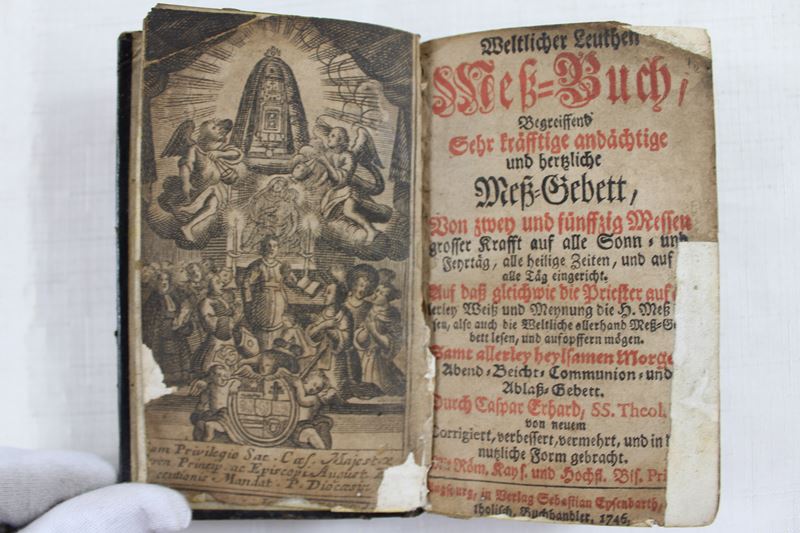 om Privilegio Sac. Cæs. Majest
Princip. ac Episcopi August.
Mandat. P. Diœcesi
Weltlicher Leuthen
Meß-Buch,
Begreiffend
Sehr kräfftige andächtige
und hertzliche
Meß-Gebett,
Von zwey und fünffzig Messen
grosser Krafft auf alle Sonn- und
Feyrtäg, alle heilige Zeiten, und auf
alle Täg eingericht.
Auf daß gleichwie die Priester auf
lerley Weiß und Meynung die H. Meß
sen, also auch die Weltliche allerhand Meß-Ge
bett lesen, und aufopffern mögen.
Samt allerley heylsamen Morge
Abend-Beicht-Communion-und
Ablaß-Gebett.
Durch Caspar Erhard, SS. Theol.
von neuem
Corrigiert, verbessert, vermehrt, und in
nutzliche Form gebracht.
Mit Röm. Kays. und Hochfl. Bis. Pri
ugspurg, in Verlag Sebastian Eysenbarth,
tholisch. Buchhandler, 1746.